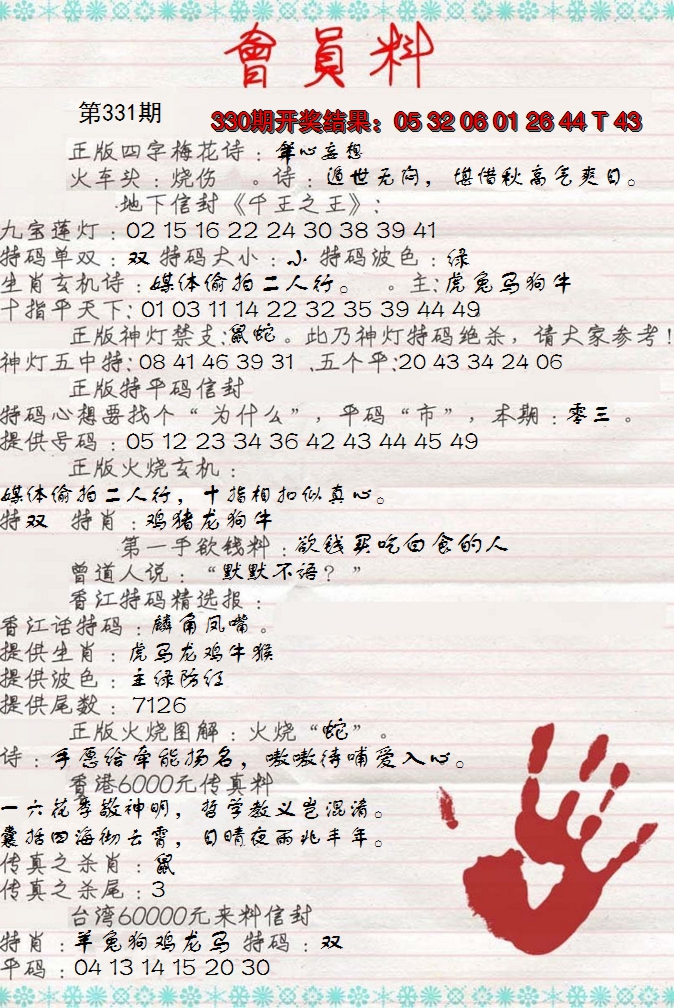 會員料
第331期
330期开奖结果：05 32 06 01 26 44 T 43
正版四字梅花诗：痴心妄想
火车头：烧伤 。诗：遁世无闷，堪借秋高气爽日。
地下信封《千王之王》：
九宝莲灯：02 15 16 22 24 30 38 39 41
特码单双：双 特码大小：小 特码波色：绿
生肖玄机诗：媒体偷拍二人行。 。主：虎兔马狗牛
十指平天下：01 03 11 14 22 32 35 39 44 49
正版神灯禁支：鼠蛇。此乃神灯特码绝杀，请大家参考！
神灯五中特：08 41 46 39 31 、五个平：20 43 34 24 06
正版特平码信封
特码心想要找个“为什么”，平码“市”，本期：零三 。
提供号码：05 12 23 34 36 42 43 44 45 49
正版火烧玄机：
媒体偷拍二人行，十指相扣似真心。
特双 特肖：鸡猪龙狗牛
第一手欲钱料：欲钱买吃白食的人
曾道人说：“默默不语？”
香江特码精选报：
香江话特码：麟角凤嘴。
提供生肖：虎马龙鸡牛猴
提供波色：主绿防红
提供尾数：7126
正版火烧图解：火烧“蛇”。
诗：手愿给牵能扬名，嗷嗷待哺爱入心。
香港6000元传真料
一六花季敬神明，哲学教义岂混淆。
囊括四海彻云霄，日晴夜雨兆丰年。
传真之杀肖：鼠
传真之杀尾：3
台湾60000元来料信封
特肖：羊兔狗鸡龙马 特码：双
平码：04 13 14 15 20 30